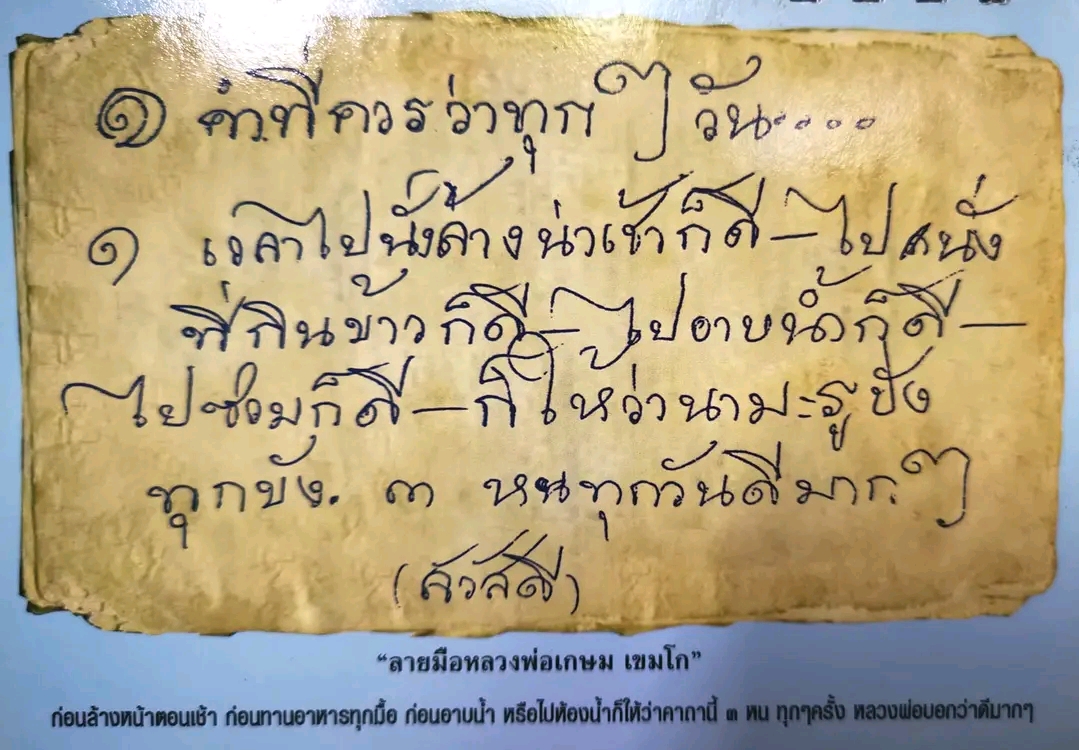 ๑ คำที่ควรว่าทุก ๆ วัน....
๑ เวลาไปนั่งล้างน่าเช้าก็ดี—ไปหนั่ง
ที่กินข้าวก็ดี—ไปอาบน้ำก็ดี—
ไปซ่วมก็ดี—ก็ให้ว่านามะรูปัง
ทุกขัง. ๓ หนทุกวันดีมาก ๆ
(สวัสดี)
“ลายมือหลวงพ่อเกษม เขมโก”
ก่อนล้างหน้าตอนเช้า ก่อนทานอาหารทุกมื้อ ก่อนอาบน้ำ หรือไปห้องน้ำก็ให้ว่าคาถานี้ ๓ หน ทุกๆครั้ง หลวงพ่อบอกว่าดีมากๆ